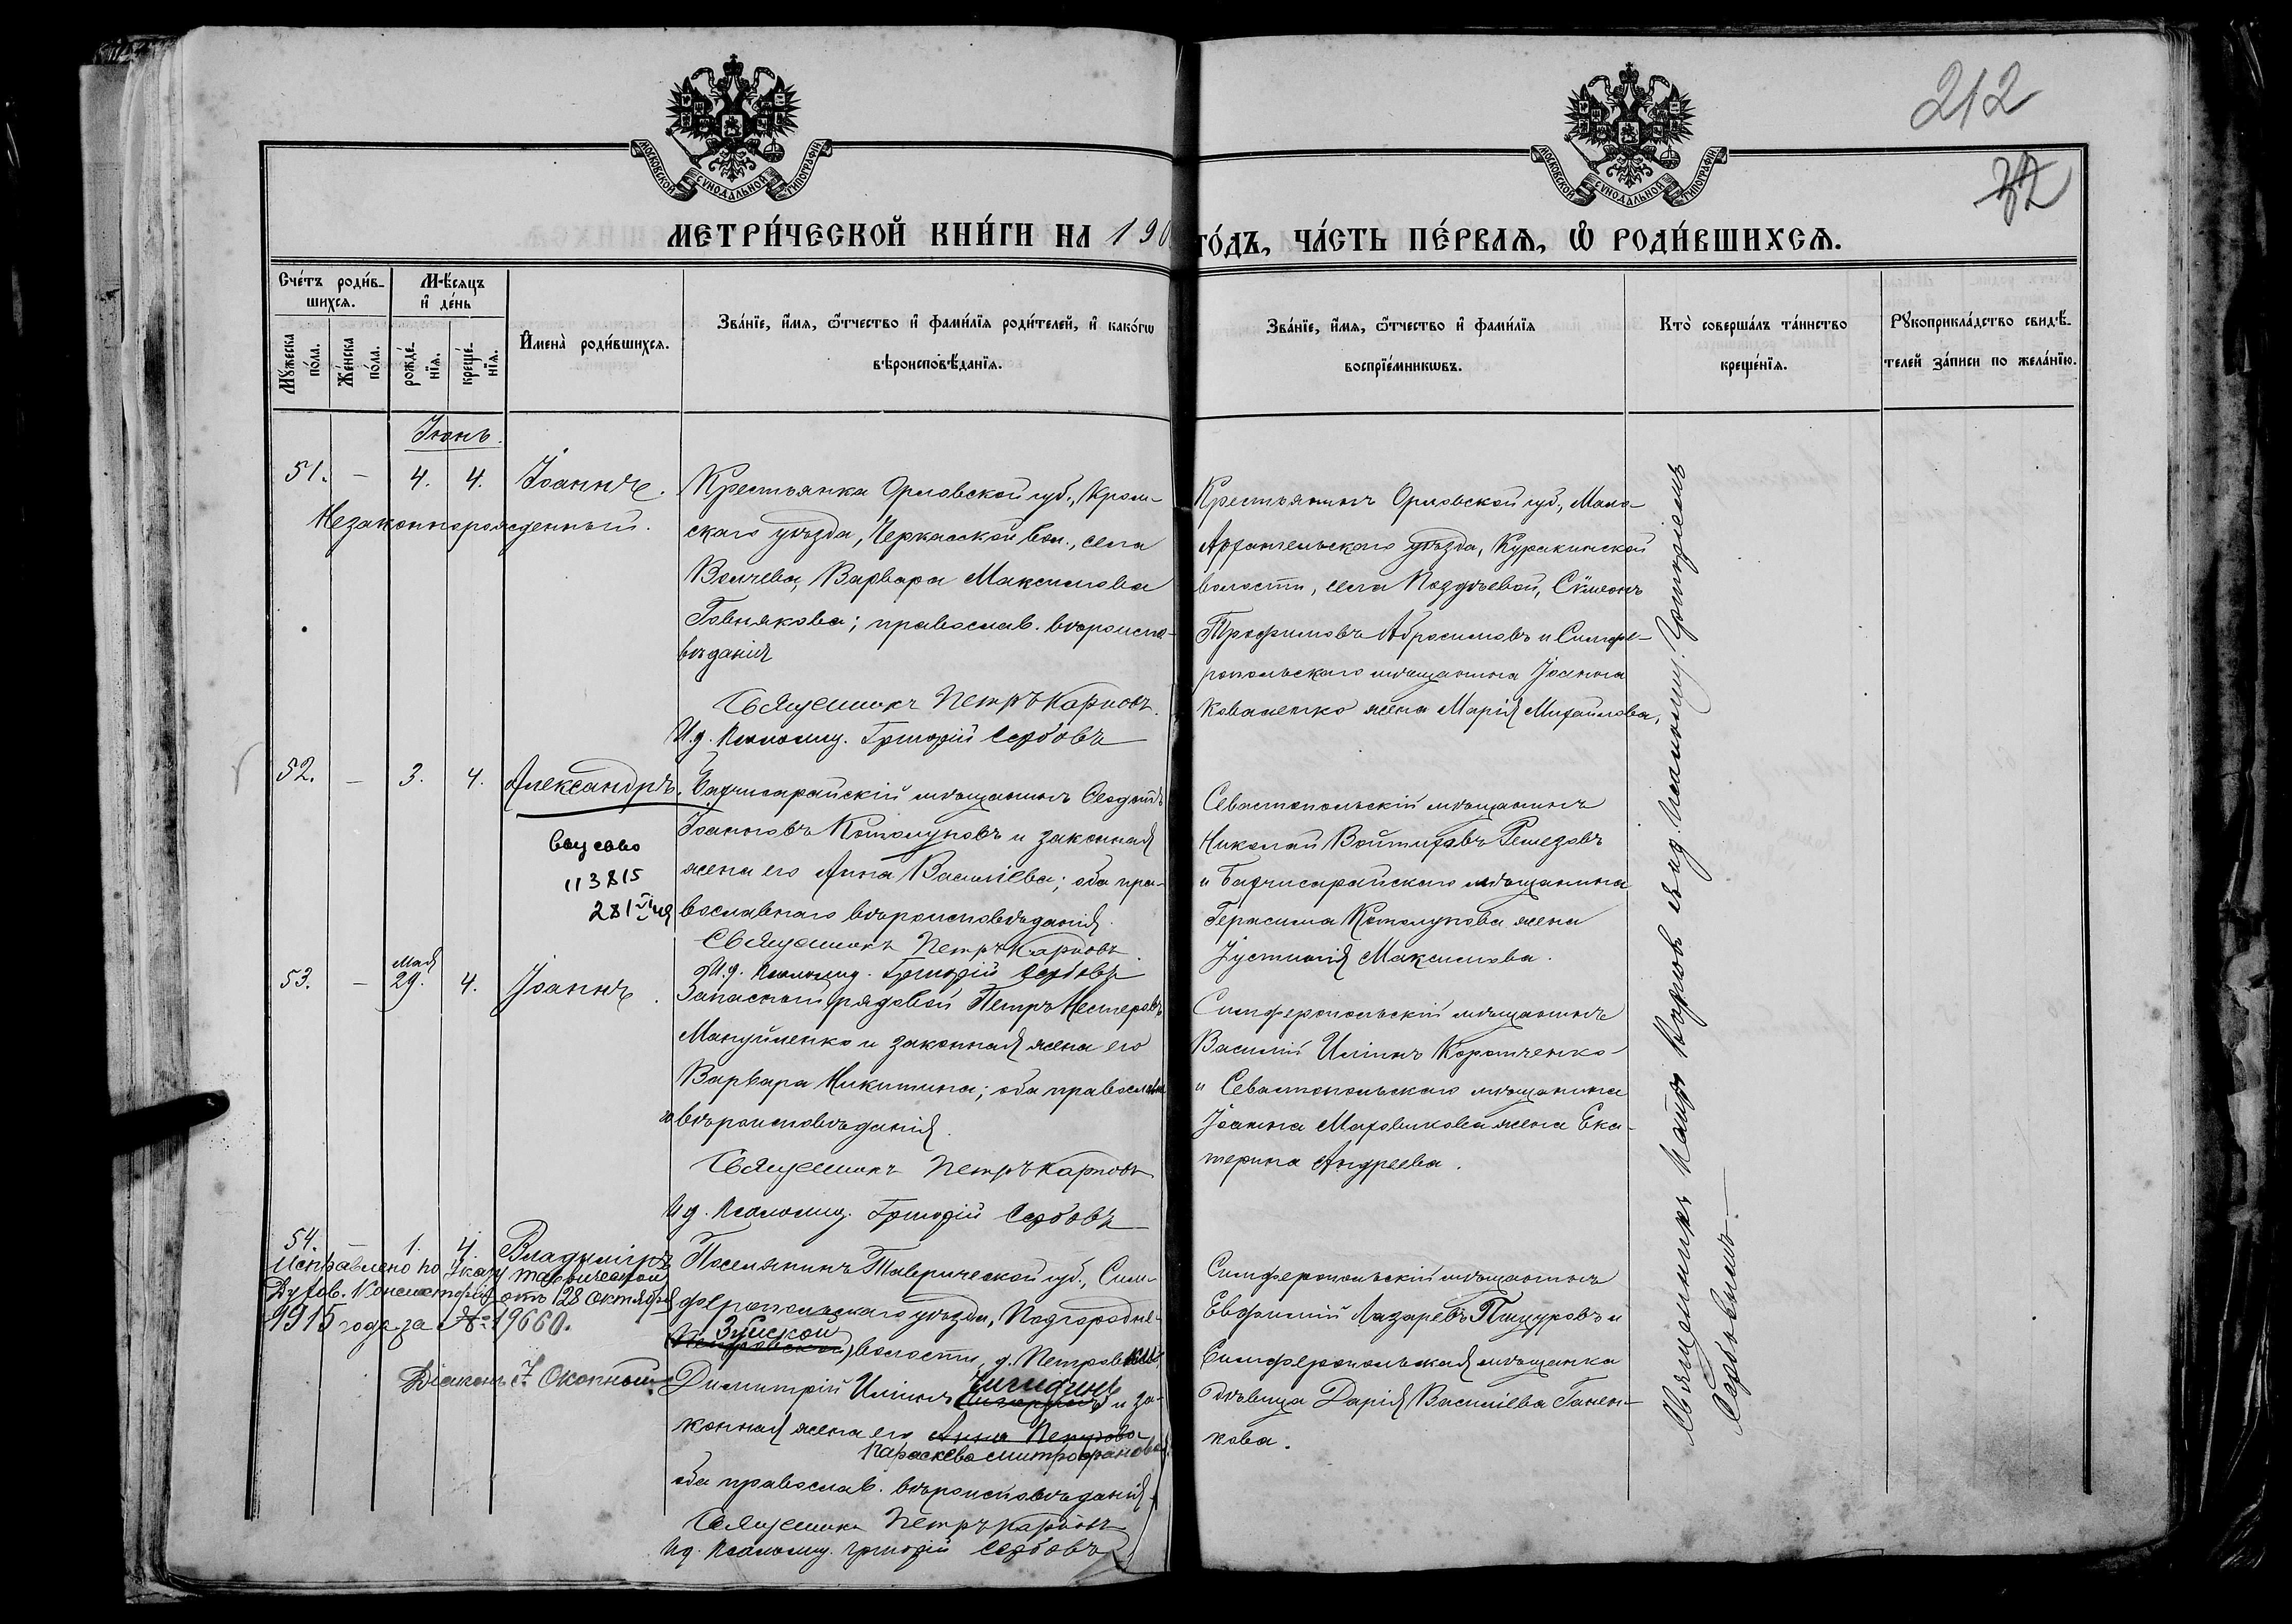 212
32
МОСКОВСКОЙ СѴНОДАЛЬНОЙ ТИПОГРАФІИ
МОСКОВСКОЙ СѴНОДАЛЬНОЙ ТИПОГРАФІИ
МЕТРИ́ЧЕСКОЙ КНИ́ГИ НА 190
ГО́ДЪ, ЧА́СТЬ ПЕ́РВАѦ, Ѽ РОДИ́ВШИХСѦ.
Сче́тъ роди́в-
шихсѧ.
Мꙋ́жеска по́ла.
Же́нска по́ла.
М-ѣсяцъ
и҆ де́нь
рожде́-
нїѧ.
креще́-
нїѧ.
И҆мена̀ роди́вшихсѧ.
Зва́нїе, и҆́мѧ, ѻ҆́тчество и҆ фами́лїѧ роди́телей, и҆ како́гѡ
вѣроисповѣ́данїѧ.
Зва́нїе, и҆́мѧ, ѻ҆́тчество и҆ фами́лїѧ
воспрїе́мникѡвъ.
Кто̀ соверша́лъ та́инство
креще́нїѧ.
Рꙋкоприкла́дство свидѣ́-
телей за́писи по жела́нїю.
Іюнь.
51. - 4. 4. Іоаннъ.
Незаконнорожденный.
Крестьянка Орловской губ., Кром-
скаго уѣзда, Черкасской вол., села
Волчева, Варвара Максимова
Говнякова; православ. вѣроиспо-
вѣданія
Священникъ Петръ Карповъ.
И.д. Псаломщ. Григорій Сербовъ
Крестьянинъ Орловской губ., Мало-
Архангельскаго уѣзда, Куракинской
волости, села Поздѣевой, Сѵмеонъ
Трофимовъ Абросимовъ и Симфе-
ропольскаго мѣщанина Іоанна
Коваленко жена Марія Михайлова.
52. - 3. 4. Александръ.
113815
Бахчисарайскій мѣщанинъ
Іоанновъ Котолуповъ и законная
жена его Анна Василіева; оба пра-
вославнаго вѣроисповѣданія.
Священникъ Петръ Карповъ.
И.д. Псаломщ. Григорій Сербовъ
Севастопольскій мѣщанинъ
Николай Ремезовъ
и Бахчисарайскаго мѣщанина
Герасима Котолупова жена
Іустинія Максимова.
53. - Мая 29. 4. Іоаннъ.
Запасный рядовой Петръ Нестеровъ
Мануйленко и законная жена его
Варвара Никитина; оба православна-
го вѣроисповѣданія.
Священникъ Петръ Карповъ
И.д. Псаломщ. Григорій Сербовъ
Симферопольскій мѣщанинъ
Василій Иліинъ Коротченко
и Севастопольскаго мѣщанина
Іоанна Маховикова жена Ека-
терина Андреева.
54. 1. 4. Владиміръ
Исправлено по Указу Таврической
Духов. Консисторіи отъ 28 Октября
1915 года за № 19660.
Діаконъ І. Окопный
Поселянинъ Таврической губ., Сим-
феропольскаго уѣзда, Подгородне-
Зуйской
Петровской) волости, д. Петровской
Димитрій Иліинъ и за-
конная жена его Анна Петрова
Параскева Митрофанова
оба православ. вѣроисповѣданія.
Священникъ Петръ Карповъ
И.д. Псаломщ. Григорій Сербовъ
Симферопольскій мѣщанинъ
Евфимій Лазаревъ Пищуровъ и
Симферопольская мѣщанка
дѣвица Дарія Василіева Ганен-
кова.
Священникъ Петръ Карповъ съ и.д. Псаломщ. Григоріемъ
Сербовымъ.